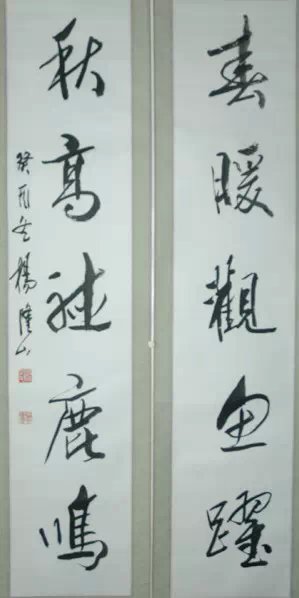 春暖觀魚躍
秋高聽鹿鳴
癸巳冬楊隆山